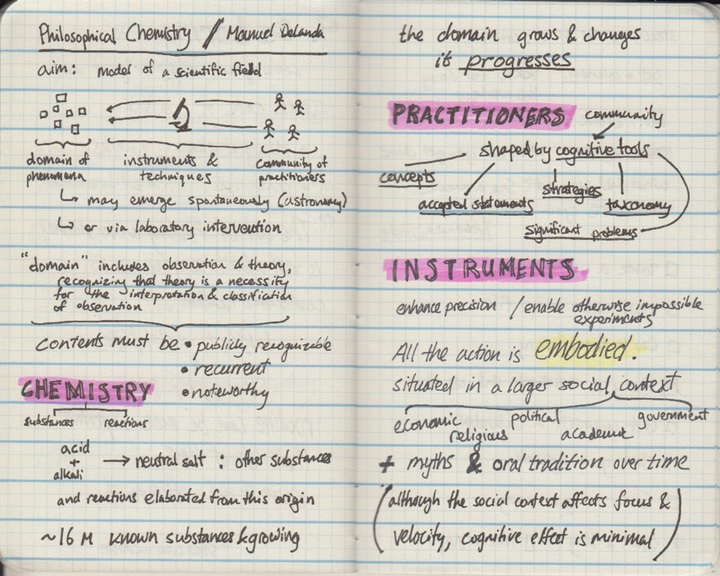 Philosophical Chemistry / Manuel DeLanda
aim: model of a scientific field
domain of phenomena
instruments & techniques
community of practitioners
may emerge spontaneously (astronomy)
or via laboratory intervention
"domain" includes observation & theory,
recognizing that theory is a necessity
for the interpretation & classification
of observation
Contents must be • publicly recognizable
• recurrent
• noteworthy
CHEMISTRY
substances reactions
acid
+
alkali
→ neutral salt : other substances
and reactions elaborated from this origin
~16 M known substances & growing
the domain grows & changes
it progresses
PRACTITIONERS community
shaped by cognitive tools
concepts
accepted statements
strategies
taxonomy
significant problems
INSTRUMENTS
enhance precision / enable otherwise impossible
experiments
All the action is embodied.
situated in a larger social context
economic political government
religious academic
+ myths & oral tradition over time
(although the social context affects focus &
velocity, cognitive effect is minimal)